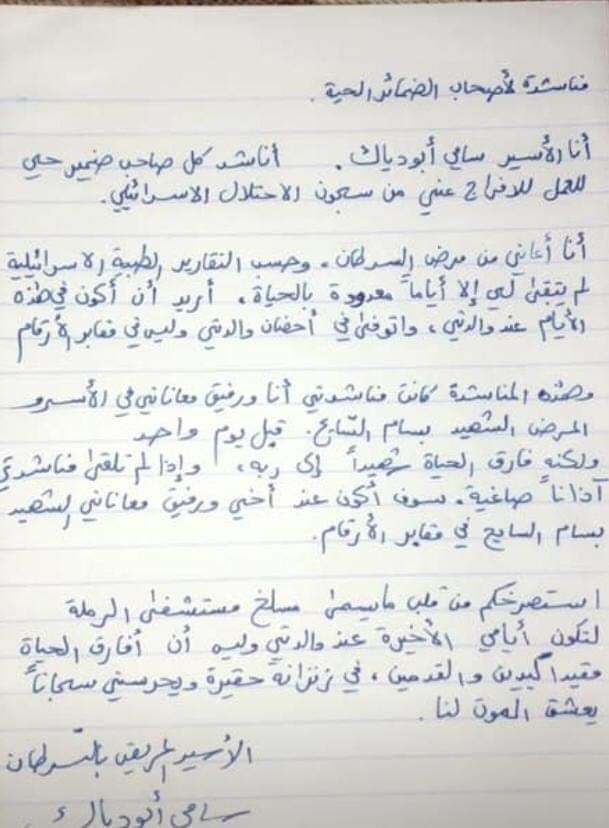 مناشدة لأصحاب الضمائر الحية.
أنا الأسير سامي أبودياك. أناشد كل صاحب ضمير حي
للعمل للافراج عني من سجون الاحتلال الاسرائيلي.
أنا أعاني من مرض السرطان، وحسب التقارير الطبية الاسرائيلية
لم يتبقى لي إلا أياماً معدودة بالحياة، أريد أن أكون في هذه
الأيام عند والدتي، واتوفى في أحضان والدتي وليس في مقابر الأرقام
وهذه المناشدة كانت مناشدتي أنا ورفيق معاناتي في الأسر و
المرض الشهيد بسام السايح. قبل يوم واحد
ولكنه فارق الحياة شهيداً إلى ربه، وإذا لم تلقى مناشدتي
آذاناً صاغية. سوف أكون عند أخي ورفيق معاناتي الشهيد
بسام السايح في مقابر الأرقام.
استصرخكم من قلب مايسمى مسلخ مستشفى الرملة
لتكون أيامي الأخيرة عند والدتي وليس أن أفارق الحياة
مقيد اليدين والقدمين، في زنزانة حقيرة ويحرسني سجاناً
يعشق الموت لنا.
الأسير المريض بالسرطان
سامي أبودياك